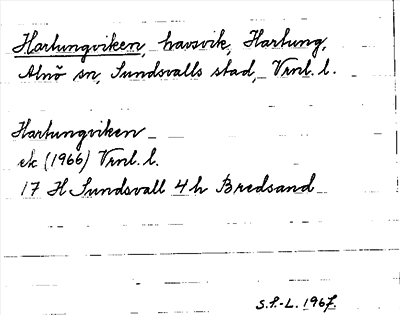 Hartungviken, havsvik, Hartung,
Alnö sn, Sundsvalls stad, Vrnl. l.
Hartungviken
ek (1966) Vrnl. l.
17 H Sundsvall 4 h Bredsand
S.P.-L. 1967.